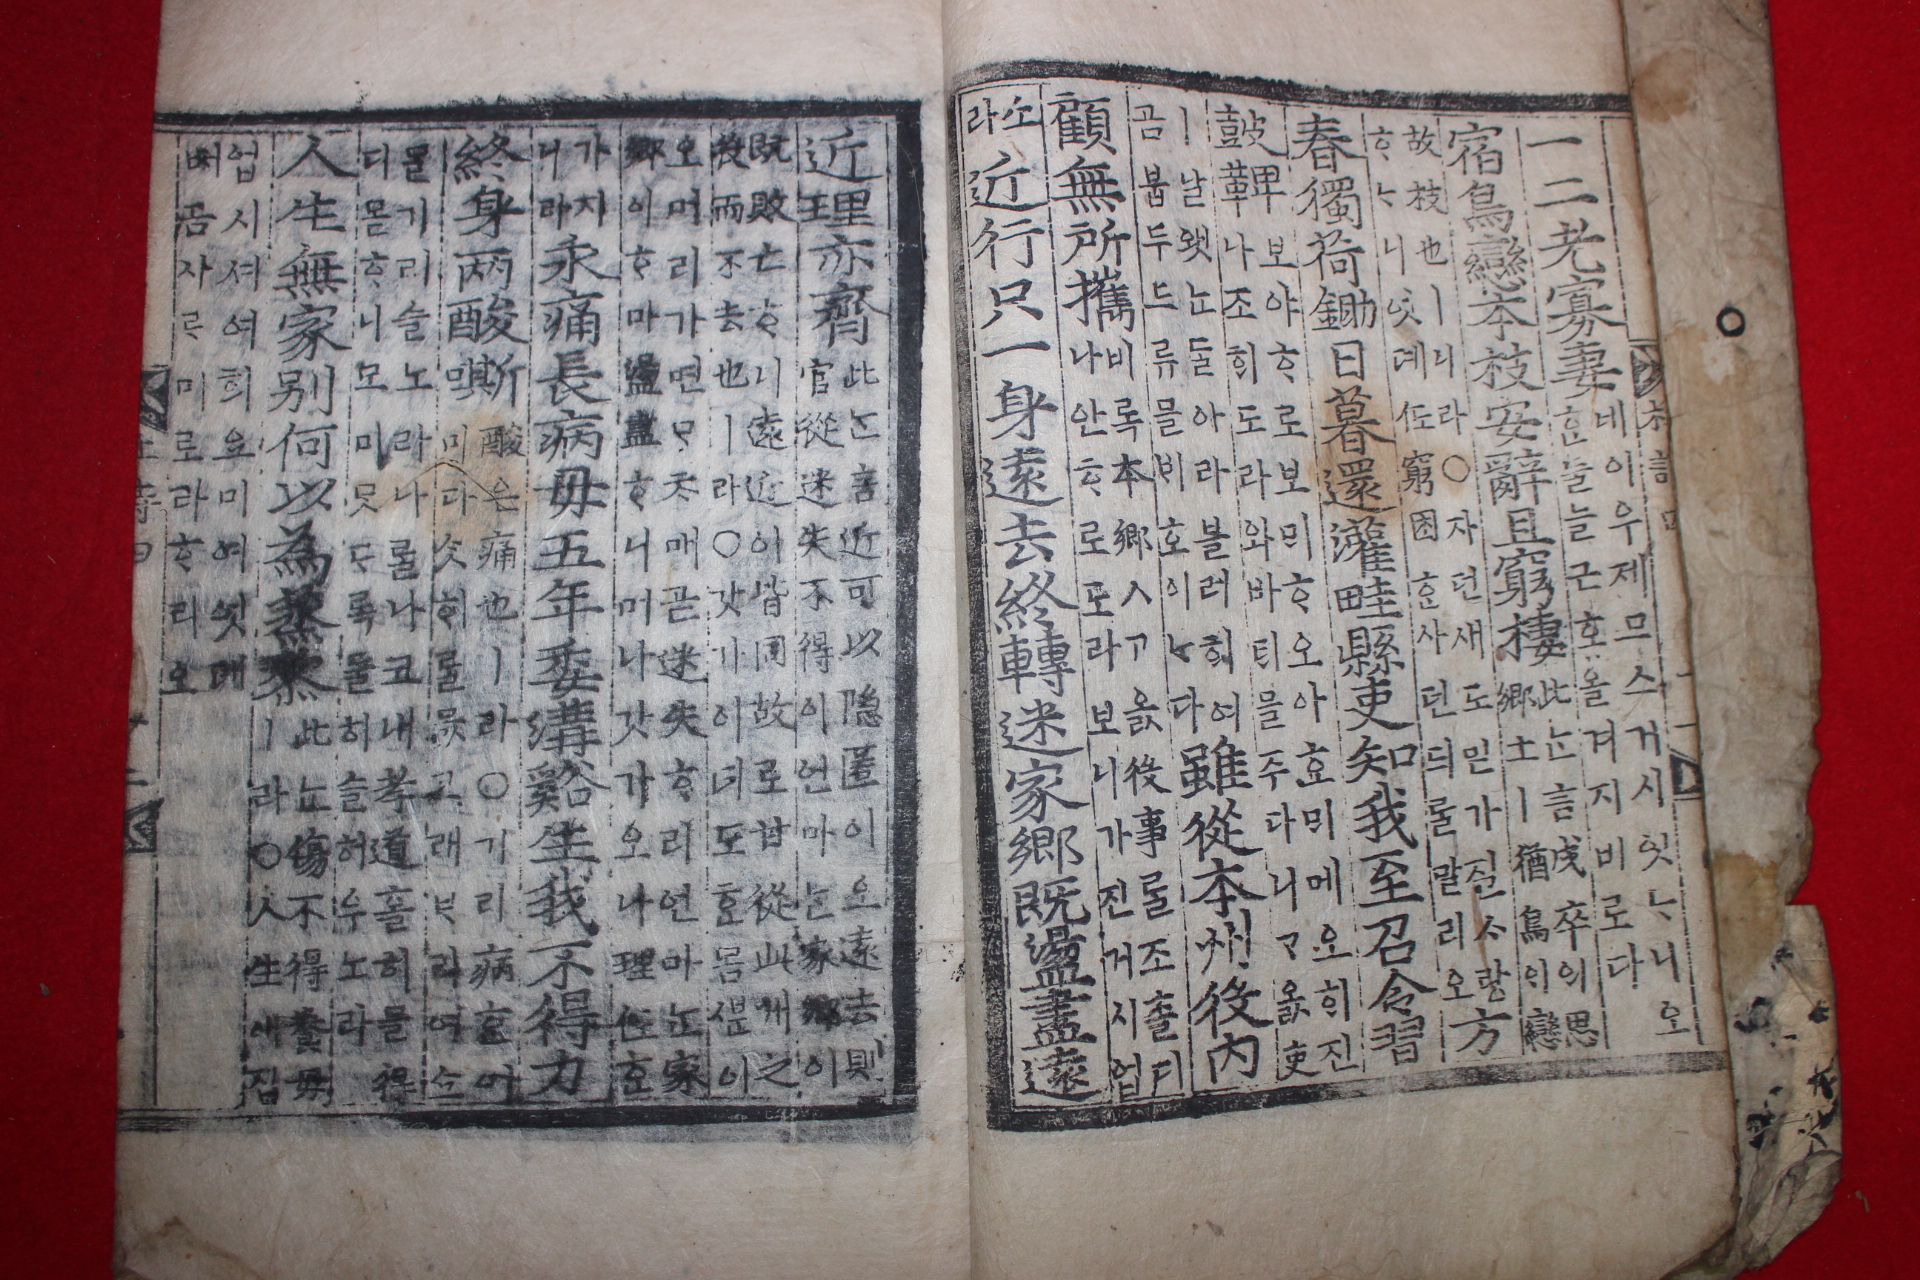 一二老寡妻 네이우제므스거시잇ᄂᆞ니오
ᄒᆞᆫ둘늘근호올겨지비로다
宿鳥戀本枝安辭且窮棲 此ᄂᆞᆫ言戍卒의思
鄕土ㅣ猶鳥의戀
故枝也ㅣ니라○자던새도믿가질ᄉᆞ랑
ᄒᆞᄂᆞ니엇뎨窮困ᄒᆞᆫ사던듸룰말리오
方
春獨荷鋤日暮還灌畦縣吏知我至召令習
鼓鞞 보야ᄒᆞ로보ᄆᆡᄒᆞ오아호ᄆᆡ메오ᄒᆡ진
나조ᄒᆡ도라와바티믈주다니ᄀᆞ옰吏
ㅣ날왯ᄂᆞᆫᄃᆞᆯ아라블러ᄒᆡ여
곰붑두드류믈비호이ᄂᆞ다
雖從本州役內
顧無所攜 비록本鄕ㅅᄀᆞ옰役事룰조촐디
나안ᄒᆞ로도라보니가진거시업
소
라
近行只一身遠去終轉迷家鄕既盪盡遠
近理亦齊 此ᄂᆞᆫ言近可以隱匿이오遠去則
官從迷失不得이언마ᄂᆞᆫ家鄕이
既敗亡ᄒᆞ니遠近이皆同故로甘從此州之
役而不去也ㅣ라○갓가이녀도ᄒᆞᆫ몸ᄲᅮᆫ이
오머리가면ᄆᆞᄎᆞ매곧迷失ᄒᆞ리언마ᄂᆞᆫ家
鄕이ᄒᆞ마盪盡ᄒᆞ니머나갓가오나理ᄒᆞᆫ
가지
니라
永痛長病母五年委溝谿生我不得力
終身兩酸嘶 酸은痛也ㅣ라○기리病ᄒᆞᆫ어
미다ᄉᆞᆺᄒᆡ룰묻고래ᄇᆞ려
몰기리슬노라나룰나코내孝道홀히믈得
디몯ᄒᆞ니모미ᄆᆞᆺᄃᆞ록둘히슬허우노라
人生無家别何以爲蒸黎 此ᄂᆞᆫ傷不得養母
ㅣ라○人生애집
업시셔여희요미여엇뎨
ᄡᅥ곰사ᄅᆞ미로라ᄒᆞ리오